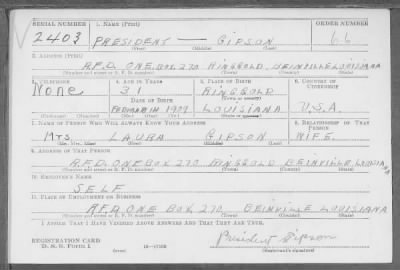 SERIAL NUMBER 1. NAME (Print) ORDER NUMBER
2403 PRESIDENT — GIPSON 66
(First) (Middle) (Last)
2. ADDRESS (Print)
R.F.D. ONE. BOX 270 RINGGOLD, BEINVILLE LOUISIANA
(Number and street or R. F. D. number) (Town) (County) (State)
3. TELEPHONE 4. AGE IN YEARS 5. PLACE OF BIRTH 6. COUNTRY OF CITIZENSHIP
None 31 RINGGOLD
DATE OF BIRTH (Town or county)
1909 LOUISIANA U.S.A.
(Mo.) (Day) (Yr.) (State or country)
7. NAME OF PERSON WHO WILL ALWAYS KNOW YOUR ADDRESS 8. RELATIONSHIP OF THAT PERSON
Mrs. LAURA GIPSON WIFE.
(Mr., Mrs., Miss) (First) (Middle) (Last)
9. ADDRESS OF THAT PERSON
R.F.D. ONE BOX 270 RINGGOLD BEINVILLE, LOUISIANA
(Number and street or R. F. D. number) (Town) (County) (State)
10. EMPLOYER'S NAME
SELF
11. PLACE OF EMPLOYMENT OR BUSINESS
R.F.D. ONE BOX 270 BEINVILLE LOUISIANA
(Number and street or R. F. D. number) (Town) (County) (State)
I AFFIRM THAT I HAVE VERIFIED ABOVE ANSWERS AND THAT THEY ARE TRUE.
REGISTRATION CARD
D. S. S. FORM 1 President Gipson
(over) 16—17105 (Registrant's signature)